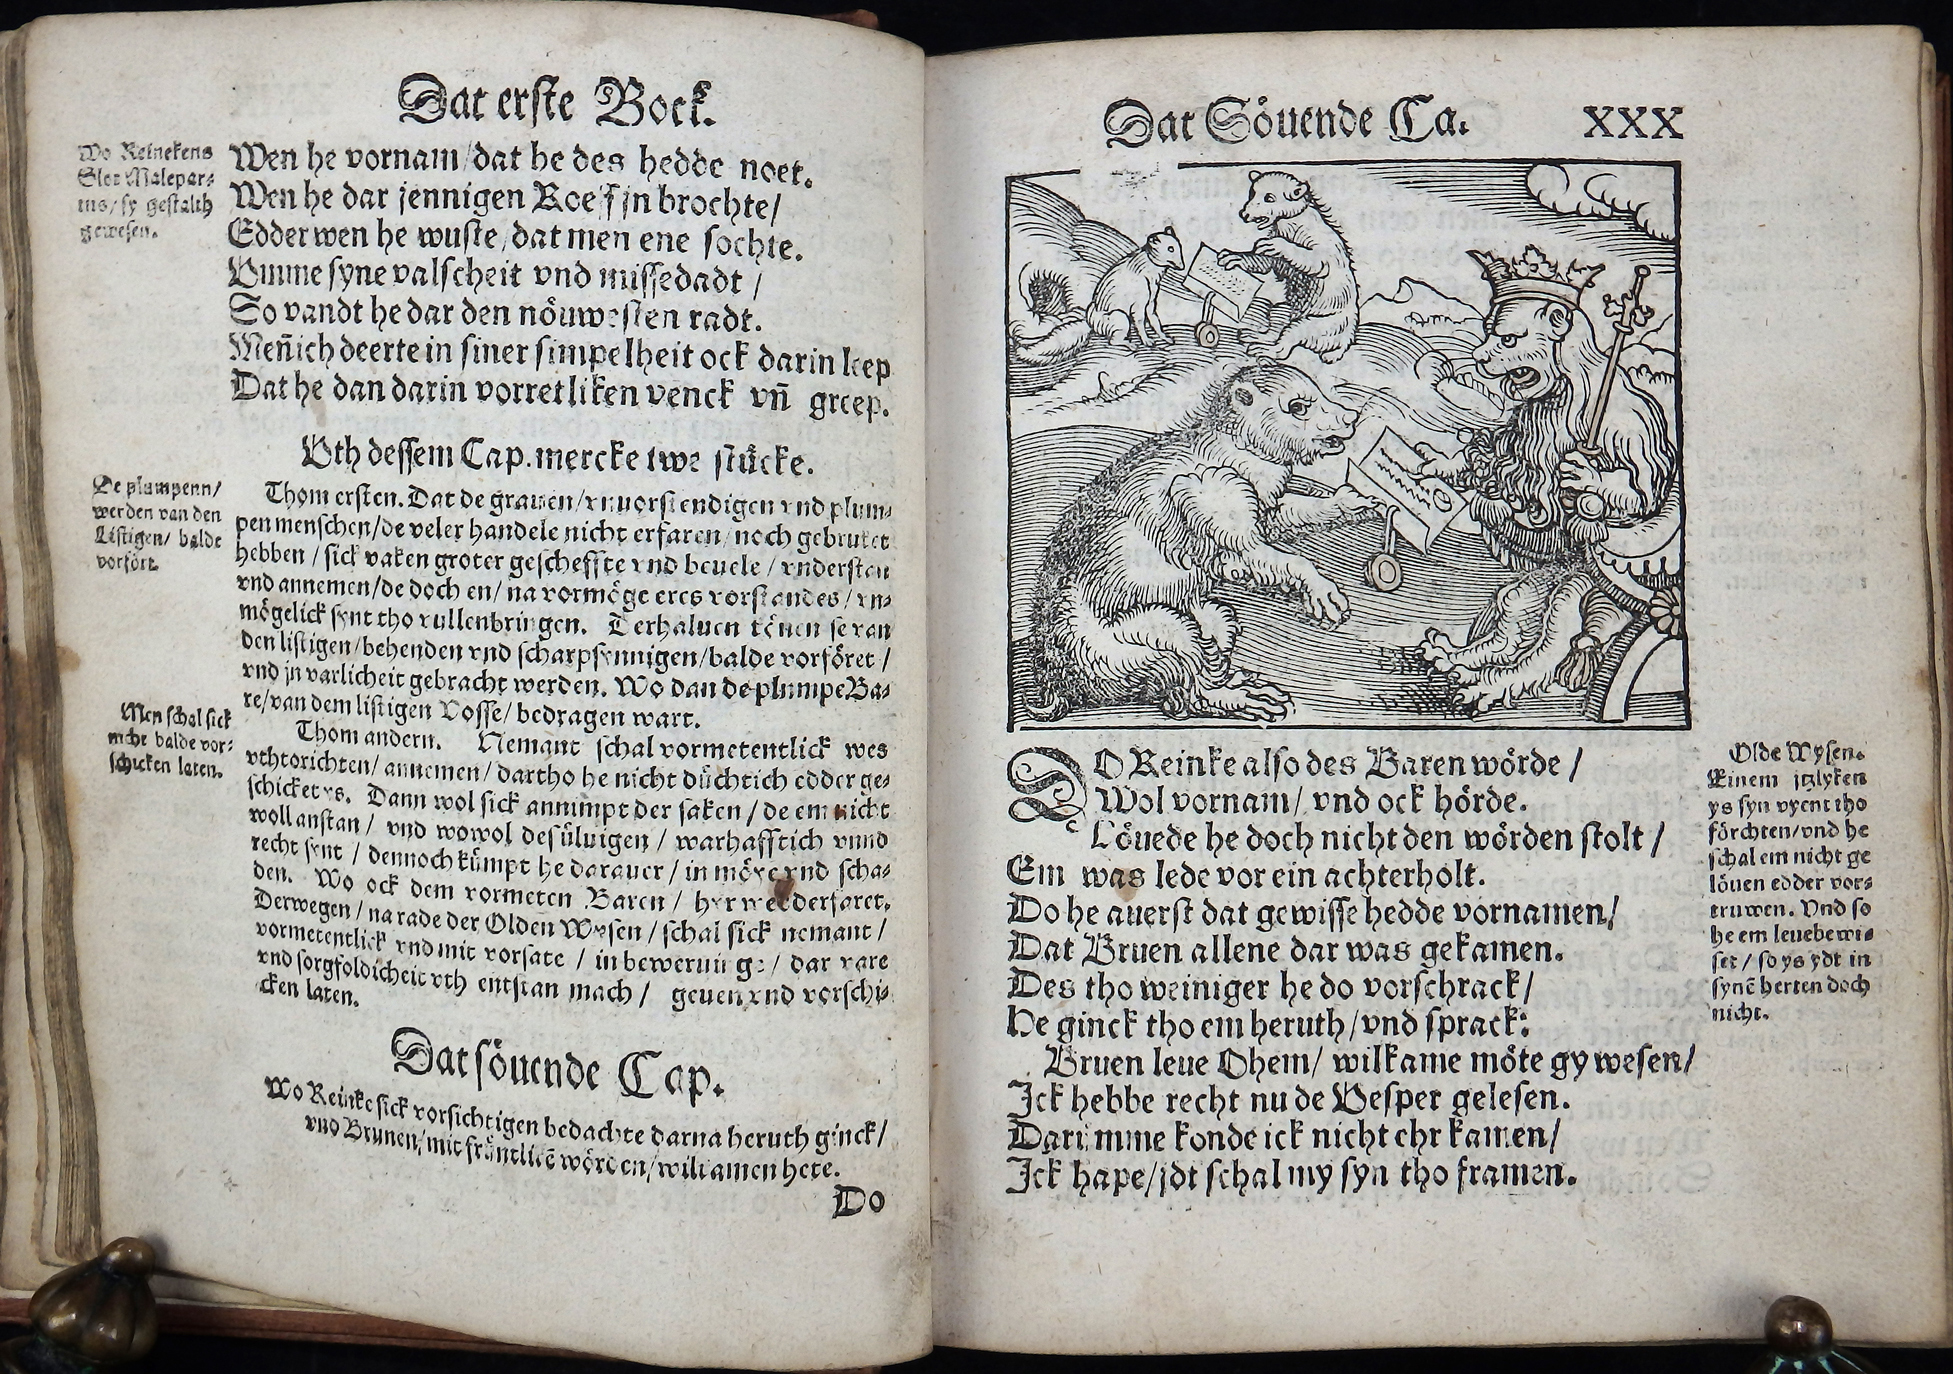 Dat erste Bock.
Wo Reinekens
Slot Malepar-
tus/sy gestalth
gewesen.
Wen he vornam/dat he des hedde noet.
Wen he dar jennigen Roeff jn brochte/
Edder wen he wuste/dat men ene sochte.
Vmme syne valscheit vnd missedadt /
So vandt he dar den nöuwesten radt.
Meñich deerte in siner simpelheit ock darin leep
Dat he dan darin vorretliken venck vñ greep.
Vth dessem Cap. mercke twe stücke.
De plumpenn/
werden van den
Listigen/ balde
vorfört.
Thom ersten. Dat de grauen/vnuorstendigen vnd plum-
pen menschen/de veler handele nicht erfaren/noch gebruket
hebben / sick vaken groter gescheffte vnd beuele / vnderstan
vnd annemen/de doch en/ na vormöge eres vorstandes / vn-
mögelick synt tho vullenbringen. Derhaluen könen se van
den listigen/behenden vnd scharpsynnigen/balde vorföret /
vnd jn varlicheit gebracht werden. Wo dan de plumpe Ba-
re/van dem listigen Vosse/ bedragen wart.
Men schal sick
nicht balde vor-
schicken laten.
Thom andern. Nemant schal vormetentlick wes
vthtorichten/ annemen/ dartho he nicht düchtich edder ge-
schicket ys. Dann wol sick annimpt der saken / de em nicht
woll anstan / vnd wowol desüluigen / warhafftich vnnd
recht synt / dennoch kümpt he darauer / in möye vnd scha-
den. Wo ock dem vormeten Baren / hyr wedderfaret.
Derwegen / na rade der Olden Wysen / schal sick nemant /
vormetentlick vnd mit vorsate / in beweruinge / dar vare
vnd sorgfoldicheit vth entstan mach / geuen vnd vorschi-
cken laten.
Dat söuende Cap.
Wo Reinke sick vorsichtigen bedachte darna heruth ginck/
vnd Brunen/mit früntlikē wörden/wilkamen hete.
Do
Dat Söuende Ca. XXX
DO Reinke also des Baren wörde /
Wol vornam/ vnd ock hörde.
Löuede he doch nicht den wörden stolt /
Em was lede vor ein achterholt.
Do he auerst dat gewisse hedde vornamen/
Dat Bruen allene dar was gekamen.
Des tho weiniger he do vorschrack/
He ginck tho em heruth/vnd sprack:
Bruen leue Ohem/ wilkame möte gy wesen/
Ick hebbe recht nu de Vesper gelesen.
Darümme konde ick nicht ehr kamen/
Ick hape/jdt schal my syn tho framen.
Olde Wysen.
Einem jtzlyken
ys syn vyent tho
förchten/vnd he
schal em nicht ge
löuen edder vor-
truwen. Vnd so
he em leue bewi-
set / so ys ydt in
synē herten doch
nicht.